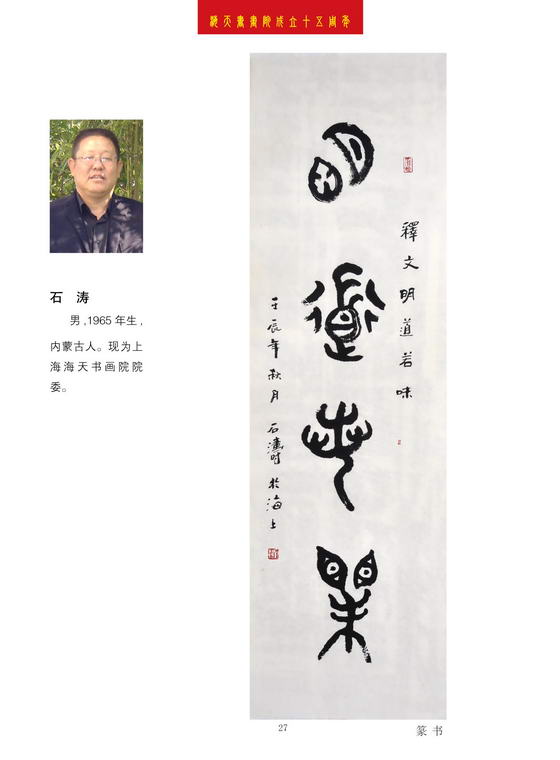 海天書畫院成立十五周年
石 涛
男,1965 年生,
内蒙古人。现为上
海海天书画院院
委。
明道若昧
釋文明道若昧
壬辰年秋月 石濤於海上
27
篆 书